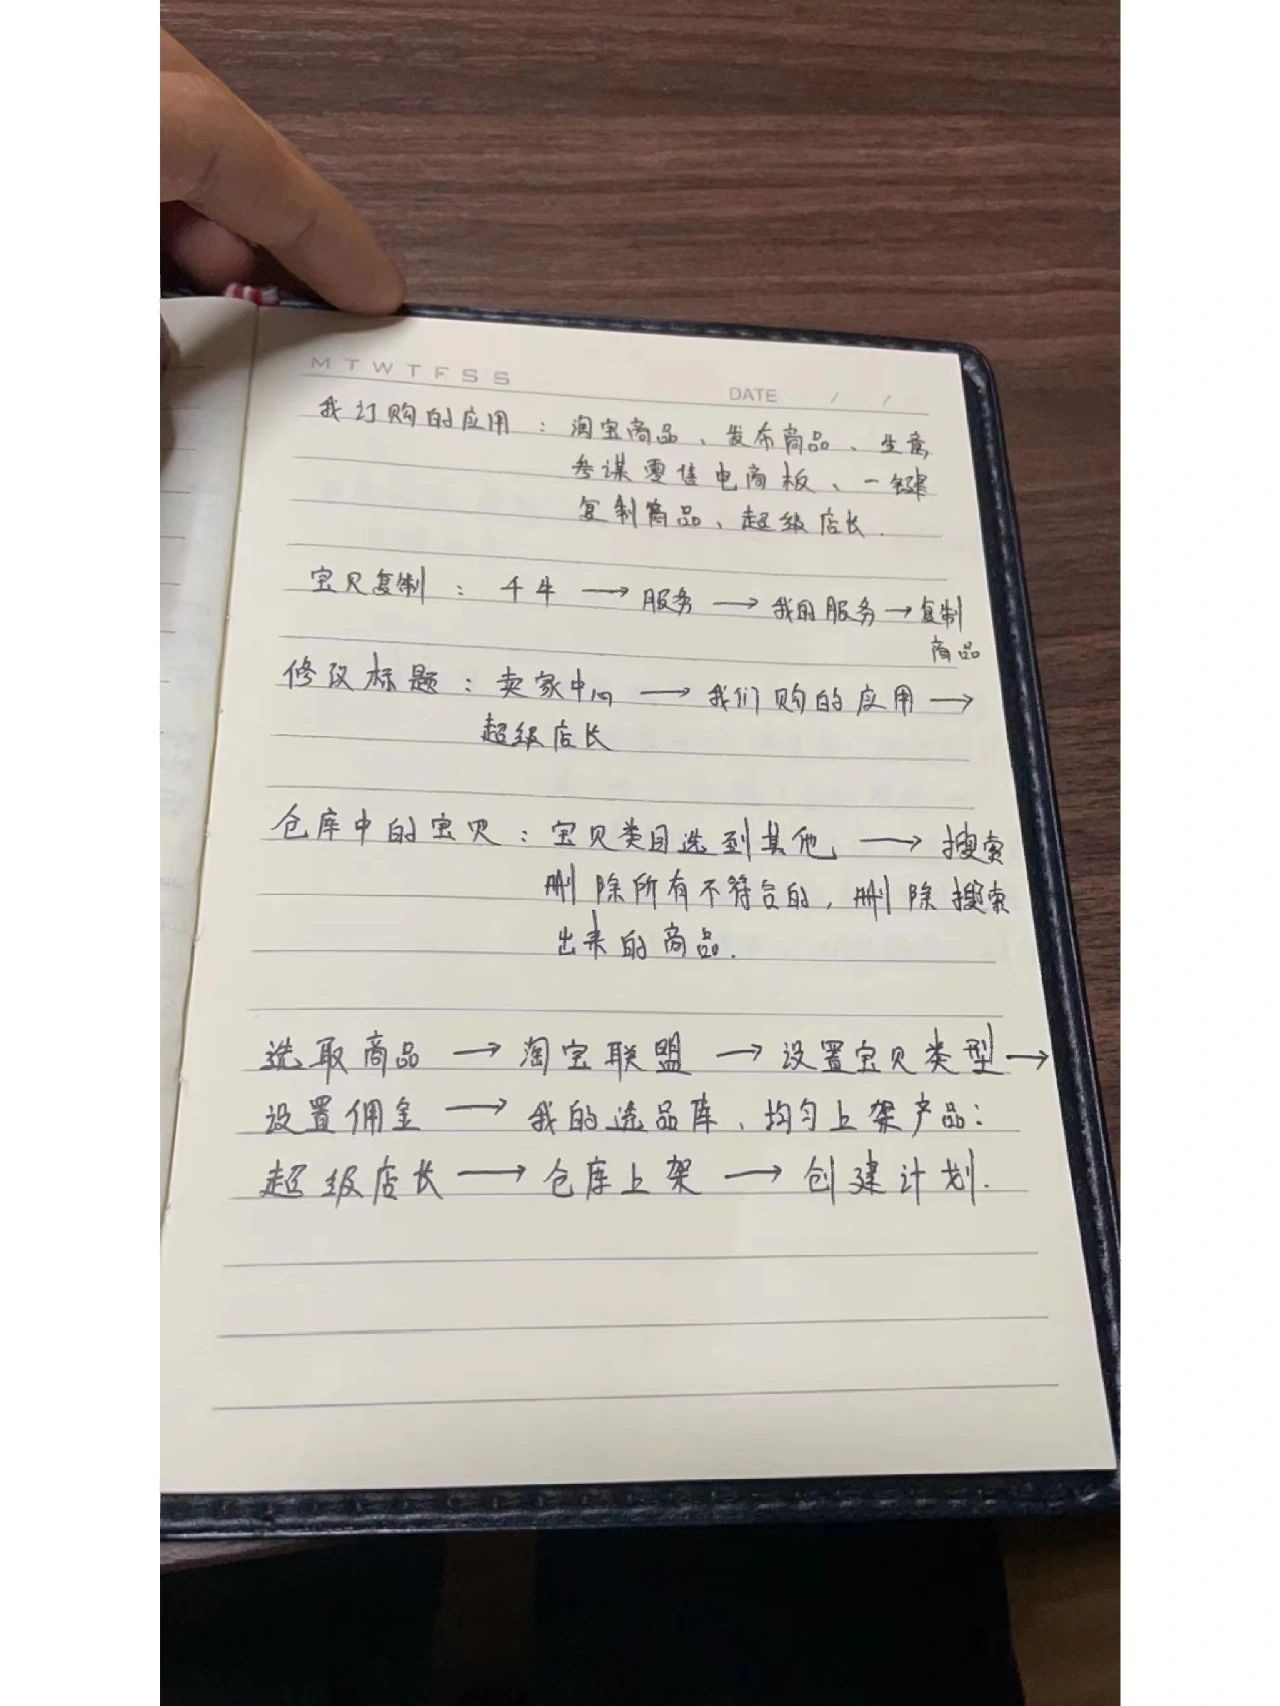 M T W T F S S
DATE / /
我订购的应用：淘宝商品、发布商品、生意
参谋零售电商板、一键
复制商品、超级店长.
宝贝复制：千牛→服务→我的服务→复制
商品
修改标题：卖家中心→我们购的应用→
超级店长
仓库中的宝贝：宝贝类目选到其他→搜索
删除所有不符合的,删除搜索
出来的商品.
选取商品→淘宝联盟→设置宝贝类型→
设置佣金→我的选品库、均匀上架产品：
超级店长→仓库上架→创建计划.